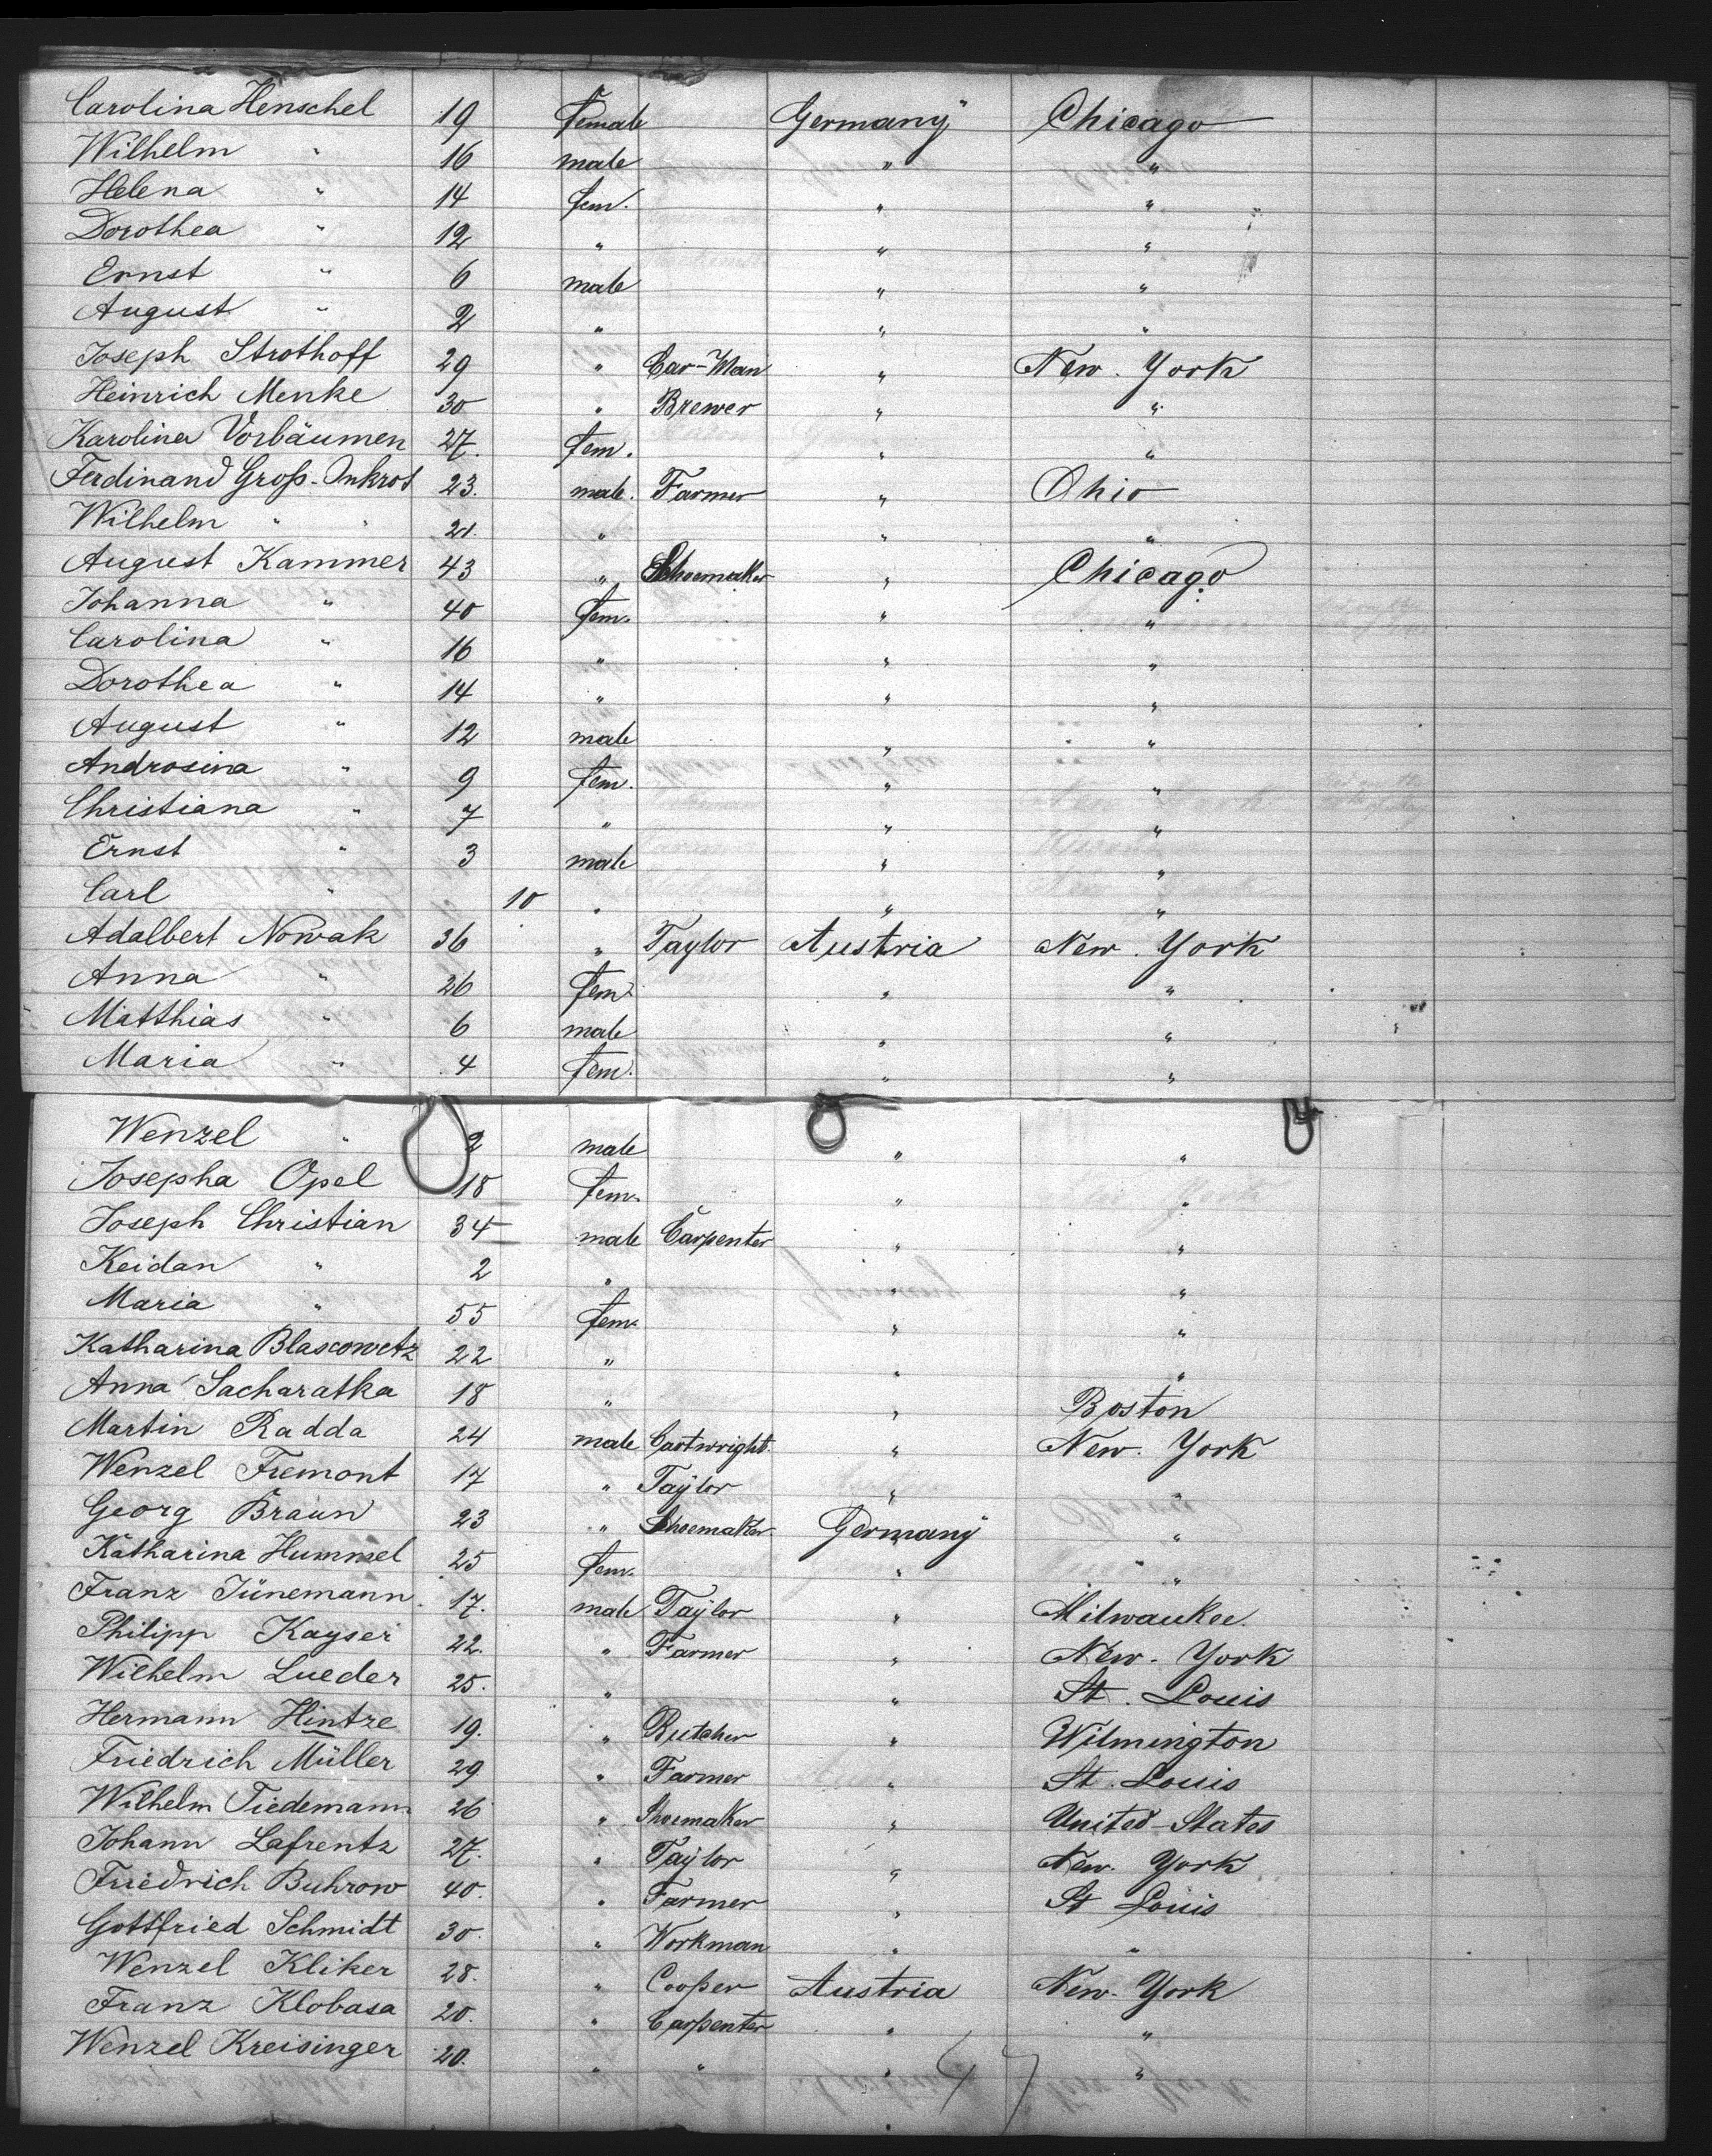 Carolina Henschel 19 female Germany Chicago
Wilhelm " 16 male " "
Helena " 14 fem. " "
Dorothea " 12 " " "
Ernst " 6 male " "
August " 2 " " "
Joseph Strothoff 29 " Car-Man " New. York
Heinrich Menke 30 " Brewer " "
Karolina Vorbäumen 27. fem. " "
Ferdinand Groß-Inkrot 23. male. Farmer " Ohio
Wilhelm " " 21. " " "
August Kammer 43 " Shoemaker " Chicago
Johanna " 40 fem. " "
Carolina " 16 " " "
Dorothea " 14 " " "
August " 12 male " "
Androsina " 9 fem. " "
Christiana " 7 " " "
Ernst " 3 male " "
Carl " 10 " " "
Adalbert Nowak 36 " Taylor Austria New. York
Anna " 26 fem. " "
Matthias " 6 male " "
Maria " 4 fem. " "
Wenzel " 2 male " "
Josepha Opel 18 fem. " "
Joseph Christian 34 male Carpenter " "
Keidan " 2 " " "
Maria " 55 fem. " "
Katharina Blascowetz 22 " " "
Anna Sacharatka 18 " " Boston
Martin Radda 24 male Cartwright " New. York
Wenzel Fremont 17 " Taylor " "
Georg Braun 23 " Shoemaker Germany "
Katharina Hummel 25 fem. " "
Franz Jünemann 17. male Taylor " Milwaukee.
Philipp Kayser 22. " Farmer " New-York
Wilhelm Lueder 25. " " St. Louis
Hermann Hintze 19. " Butcher " Wilmington
Friedrich Müller 29. " Farmer " St. Louis
Wilhelm Tiedemann 26 " Shoemaker " United-States
Johann Lafrentz 27. " Taylor " New. York
Friedrich Buhrow 40. " Farmer " St Louis
Gottfried Schmidt 30. " Workman " "
Wenzel Kliker 28. " Cooper Austria New-York
Franz Klobasa 20. " Carpenter " "
Wenzel Kreisinger 20. " " " "
47